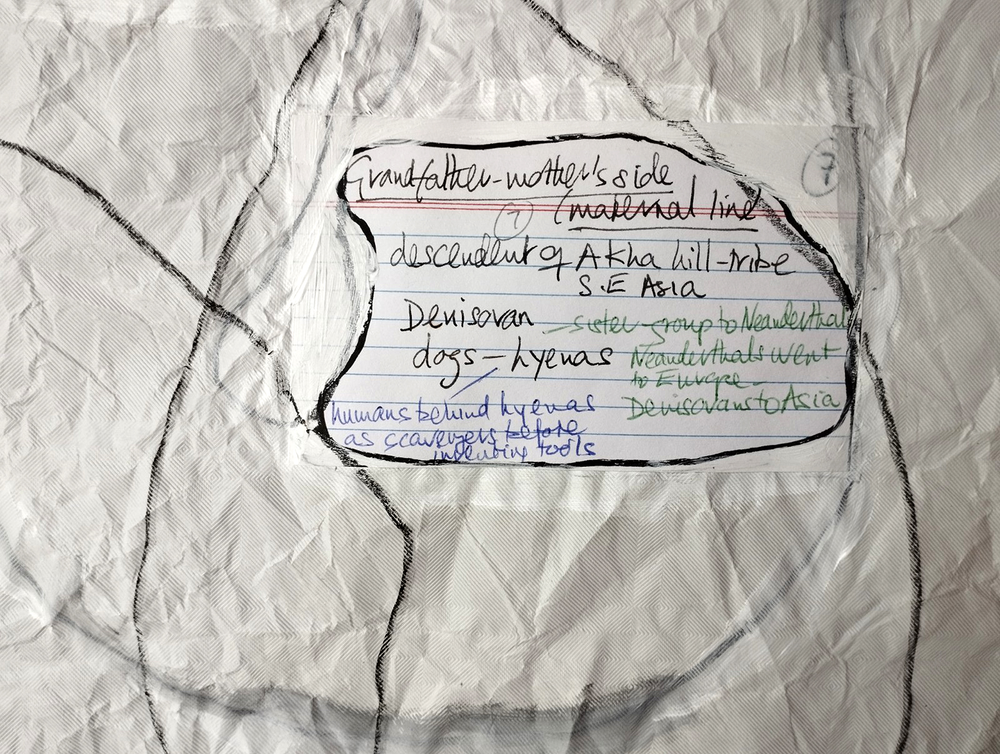 Grandfather-mother's side
(maternal line
descendent of Akha hill-tribe
S.E Asia
Denisovan
dogs – hyenas
sister-group to Neanderthal
Neanderthals went
to Europe –
Denisovans to Asia
humans behind hyenas
as scavengers before
inventing tools